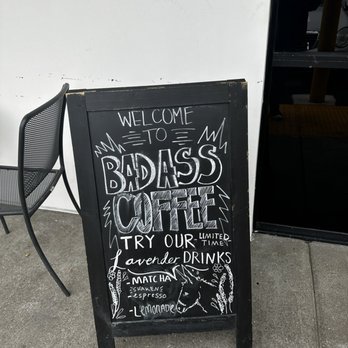 WELCOME
TO
BADASS
COFFEE
TRY OUR LIMITED TIME
Lavender DRINKS
MATCHA
SHAKEN
espresso
-Lemonade